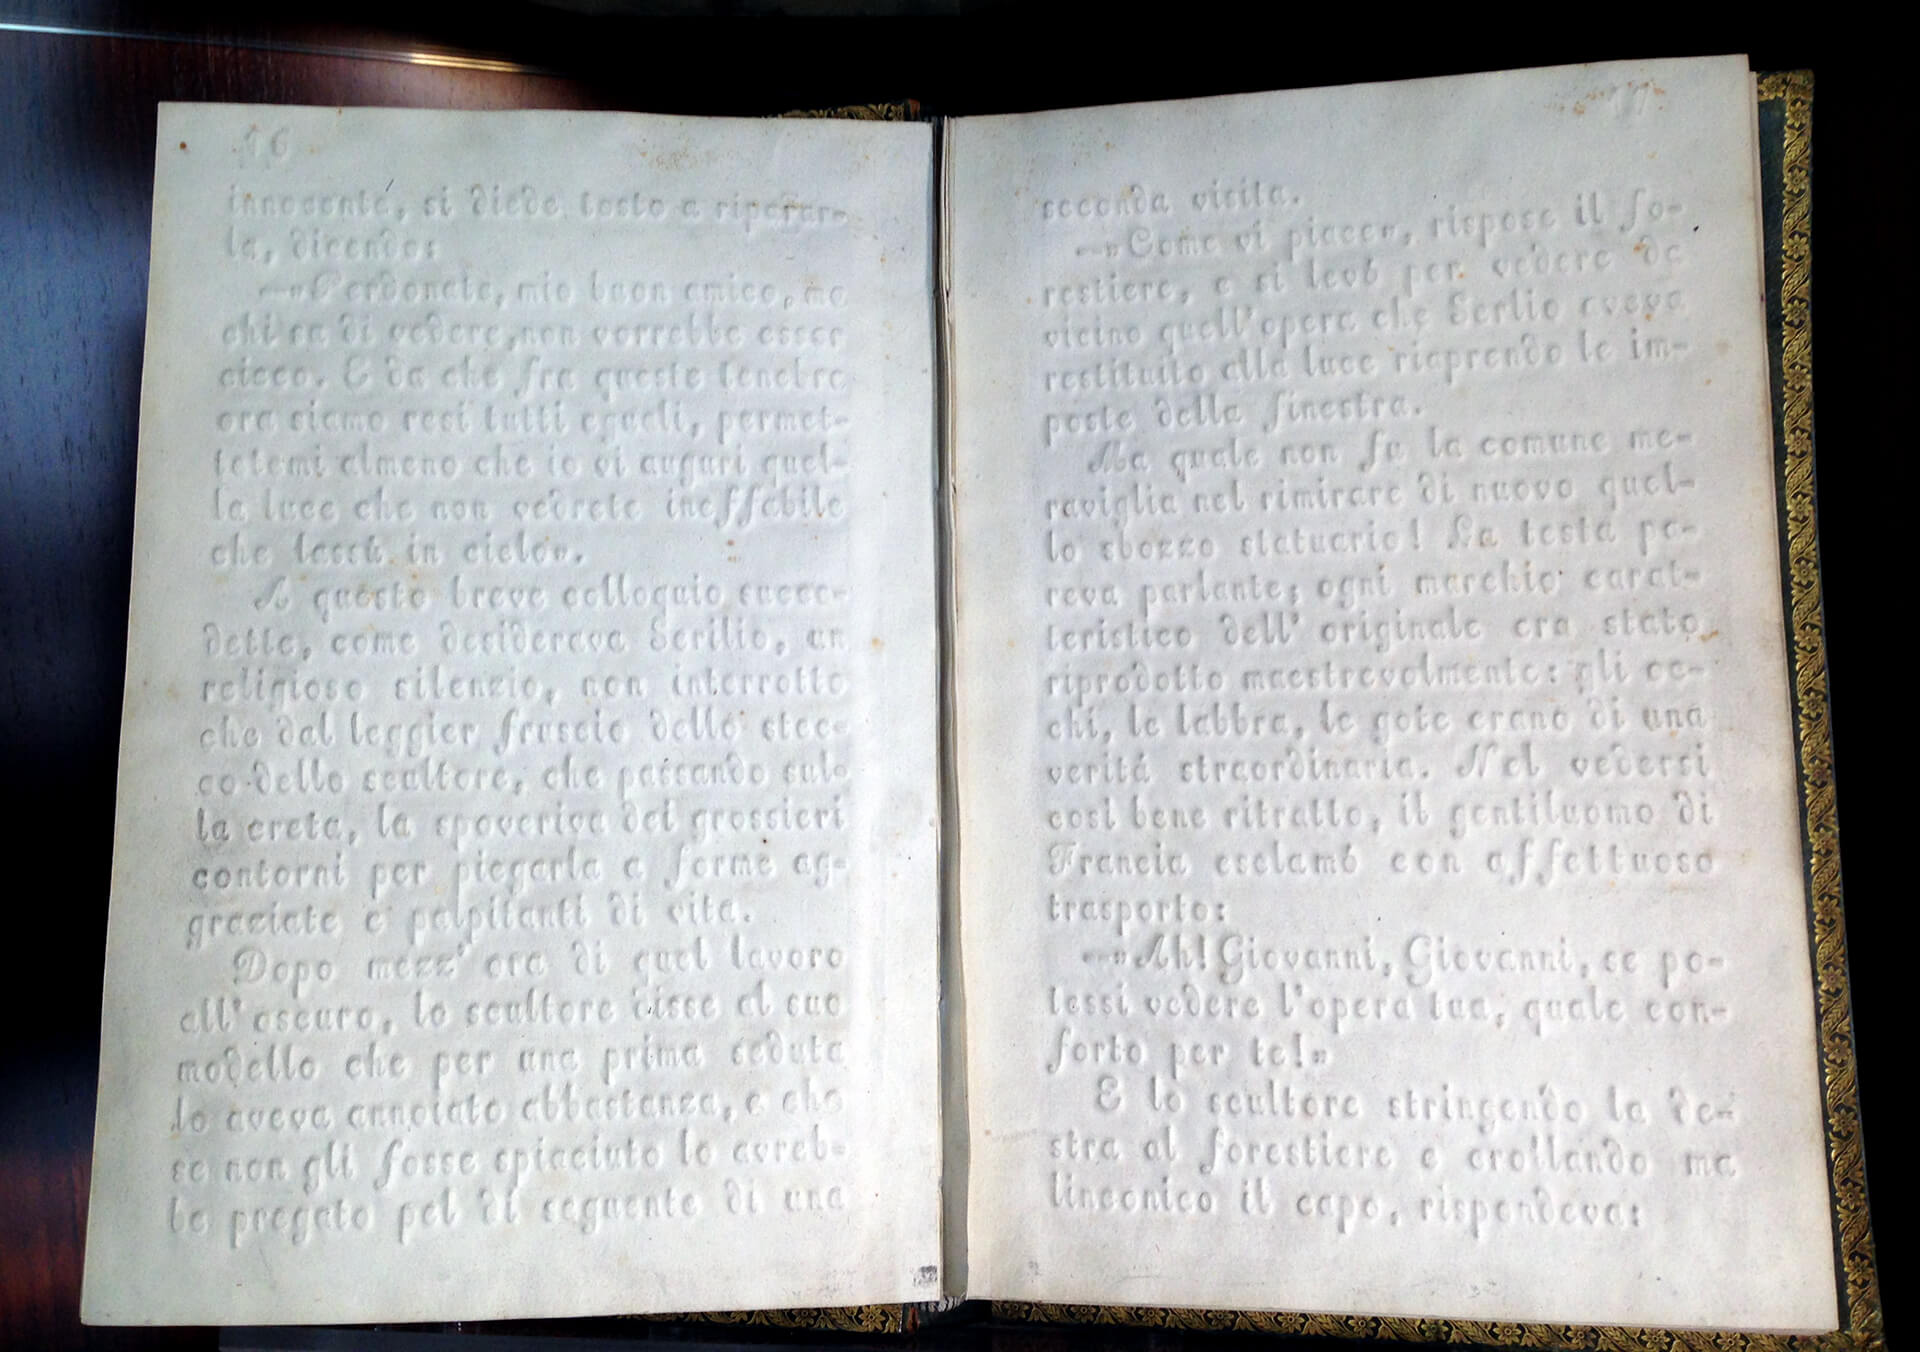 16
innocente, si diede tosto a riparar-
la, dicendo:
—»Perdonate, mio buon amico, ma
chi sa di vedere, non vorrebbe esser
cieco. E da che fra queste tenebre
ora siamo resi tutti eguali, permet-
tetemi almeno che io vi auguri quel-
la luce che non vedrete ineffabile
che lassù in cielo».
A questo breve colloquio succe-
dette, come desiderava Serilio, un
religioso silenzio, non interrotto
che dal leggier fruscio dello stec-
co dello scultore, che passando sul-
la creta, la spoveriva dei grossieri
contorni per piegarla a forme ag-
graziate e palpitanti di vita.
Dopo mezz' ora di quel lavoro
all' oscuro, lo scultore disse al suo
modello che per una prima seduta
lo aveva annoiato abbastanza, e che
se non gli fosse spiaciuto lo avreb-
be pregato pel dì seguente di una
17
seconda visita.
—»Come vi piace», rispose il fo-
restiere, e si levò per vedere da
vicino quell'opera che Serlio aveva
restituito alla luce riaprendo le im-
poste della finestra.
Ma quale non fu la comune me-
raviglia nel rimirare di nuovo quel-
lo sbozzo statuario! La testa pa-
reva parlante; ogni marchio carat-
teristico dell' originale era stato
riprodotto maestrevolmente: gli oc-
chi, le labbra, le gote erano di una
verità straordinaria. Nel vedersi
così bene ritratto, il gentiluomo di
Francia esclamò con affettuoso
trasporto:
—»Ah! Giovanni, Giovanni, se po-
tessi vedere l'opera tua, quale con-
forto per te!»
E lo scultore stringendo la de-
stra al forestiere e crollando ma
linconico il capo, rispondeva: